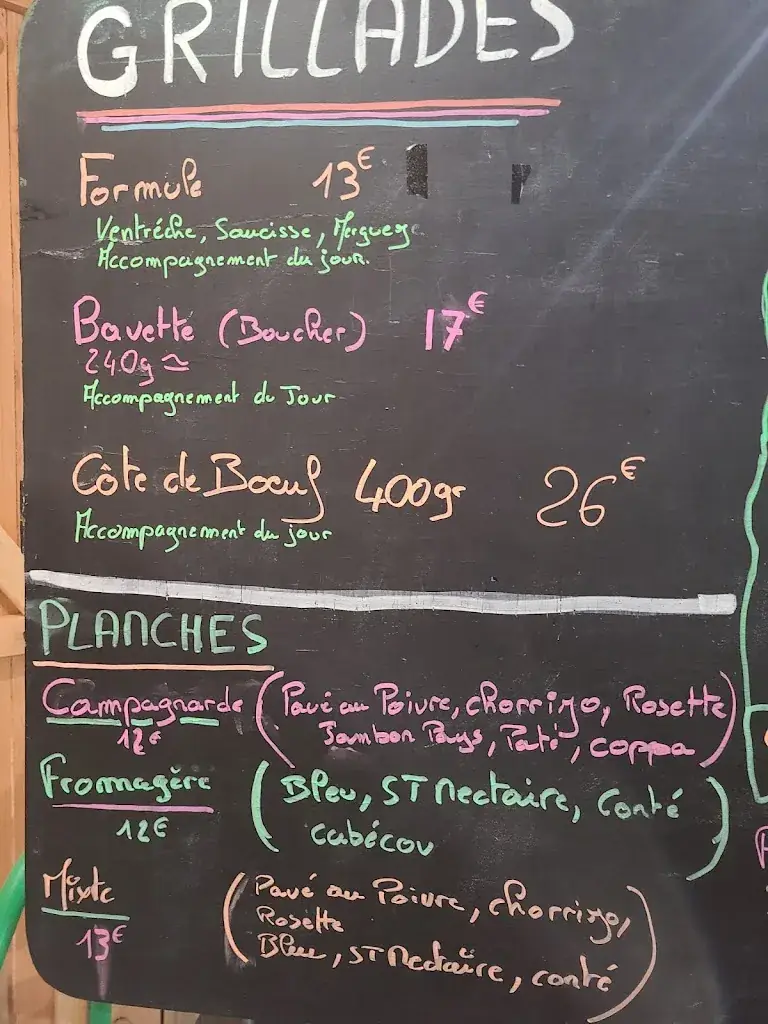 GRILLADES
Formule 13€
Ventrêche, Saucisse, Merguez
Accompagnement du jour.
Bavette (Boucher) 17€
240g ≈
Accompagnement du Jour
Côte de Boeuf 400gr 26€
Accompagnement du jour
PLANCHES
Campagnarde (Pavé au Poivre, chorrizo, Rosette
12€ Jambon Pays, Paté, coppa)
Fromagère (Bleu, ST Nectaire, Conté
12€ cabécou)
Mixte (Pavé au Poivre, chorrizo,
Rosette
13€ Bleu, ST Nectaïre, conté)